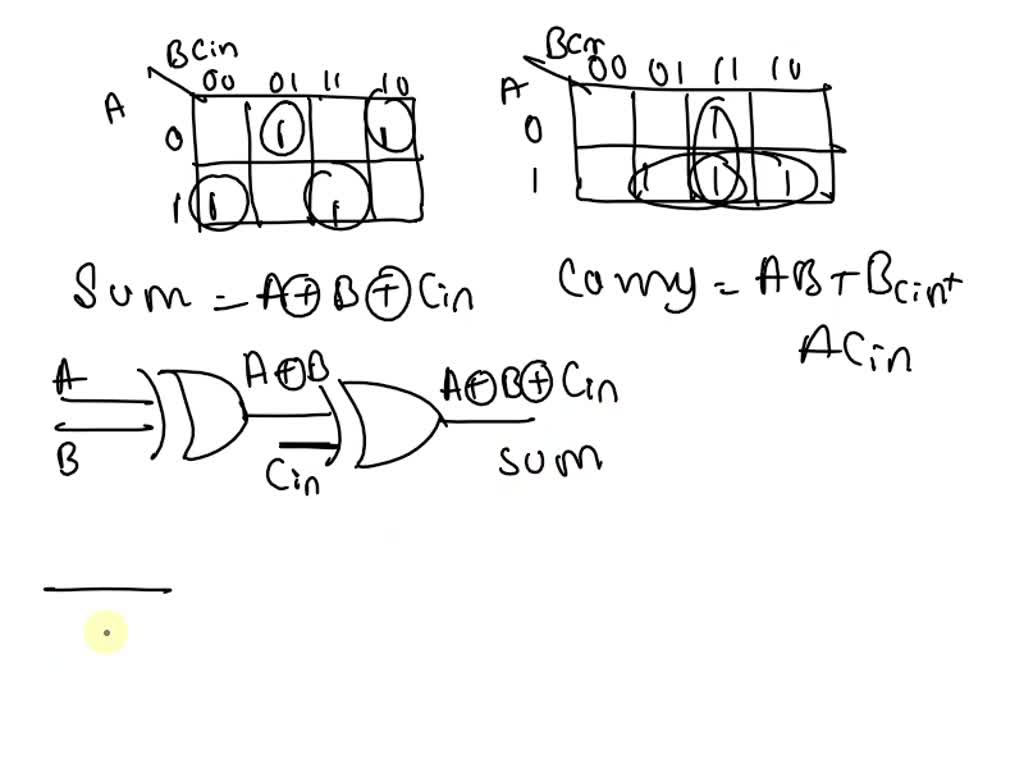 BCin
00 01 11 10
A
0 1 1
1 1 1
BCin
00 01 11 10
A
0 1
1 1 1 1
Sum = A⊕B⊕Cin
Carry = AB + BCin +
ACin
A
B
A⊕B
Cin
A⊕B⊕Cin
sum